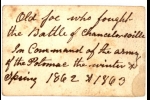 Old Joe who fought
the Battle of Chancelorsville
In Command of the army
of the Potomac the winter &
Spring 1862 & 1863